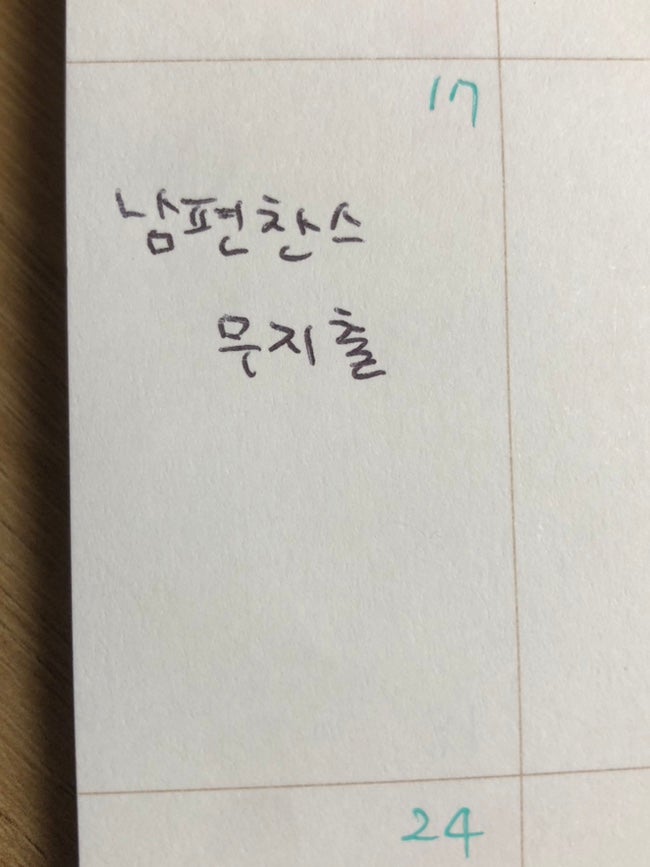 17
남편찬스
무지출
24